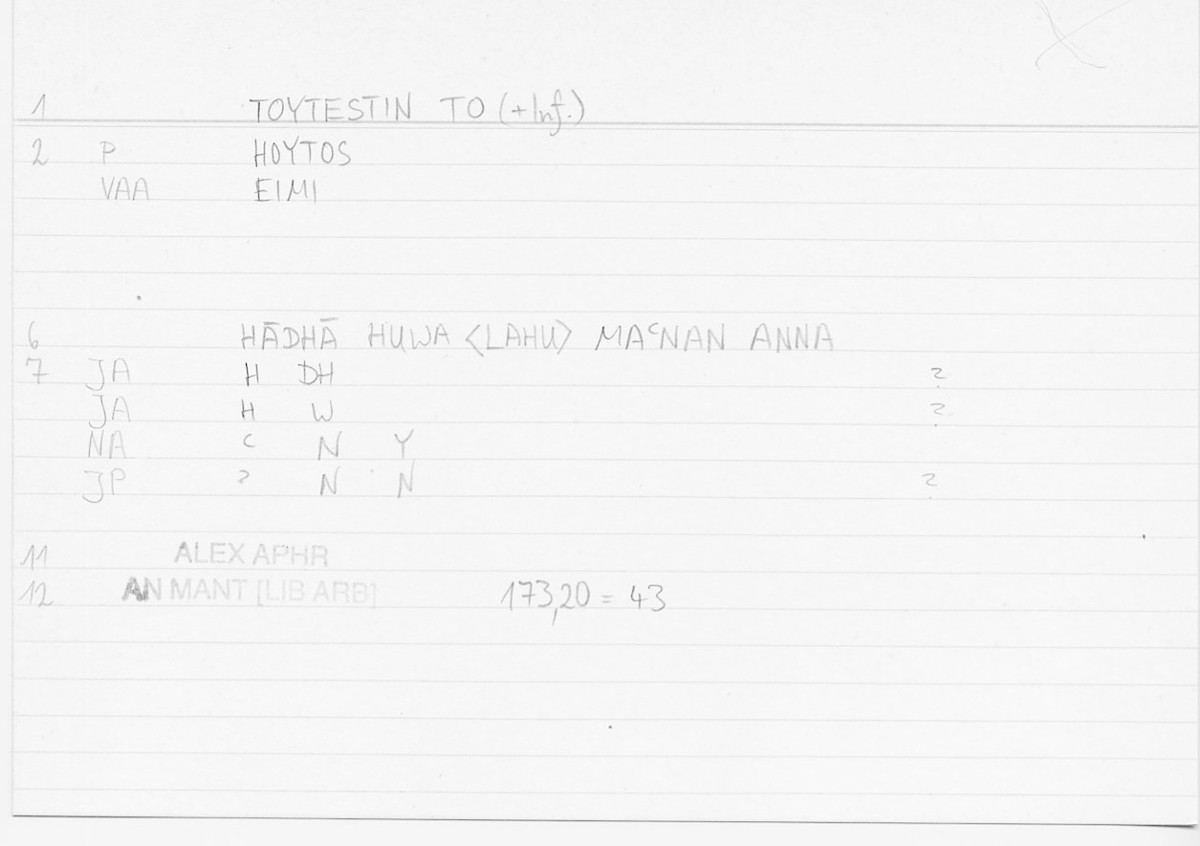 1 TOYTESTIN TO (+Inf.)
2 P HOYTOS
VAA EIMI
6 HĀDHĀ HUWA <LAHU> MAʿNAN ANNA
7 JA H DH ?
JA H W ?
NA ʿ N Y
JP ʾ N N ?
11 ALEX APHR
12 AN MANT [LIB ARB] 173,20 = 43